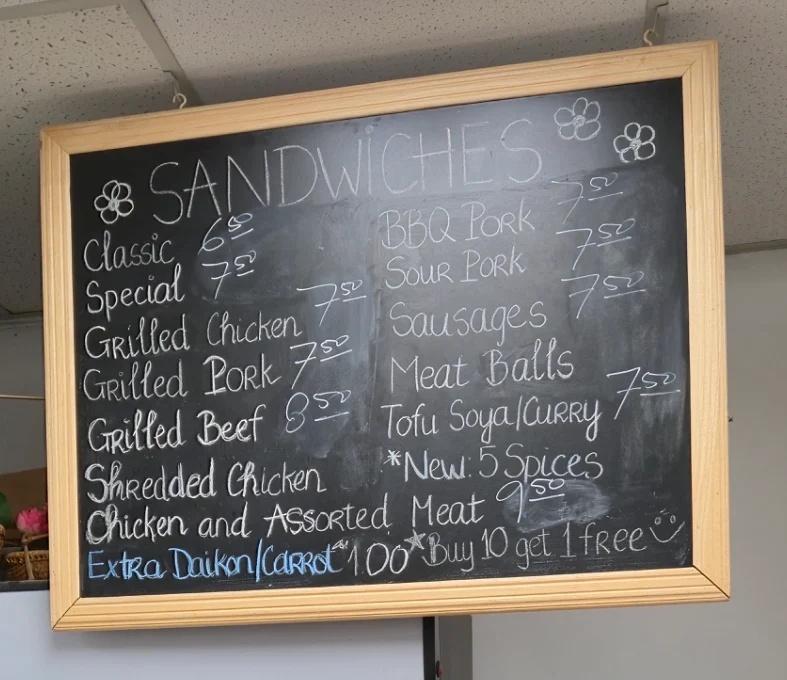 SANDWICHES
Classic 6.50
Special 7.50
Grilled Chicken 7.50
Grilled Pork 7.50
Grilled Beef 8.50
Shredded Chicken
Chicken and Assorted Meat 9.50
Extra Daikon/Carrot $1.00
BBQ Pork 7.50
Sour Pork 7.50
Sausages 7.50
Meat Balls
Tofu Soya/Curry 7.50
*New: 5 Spices
*Buy 10 get 1 free